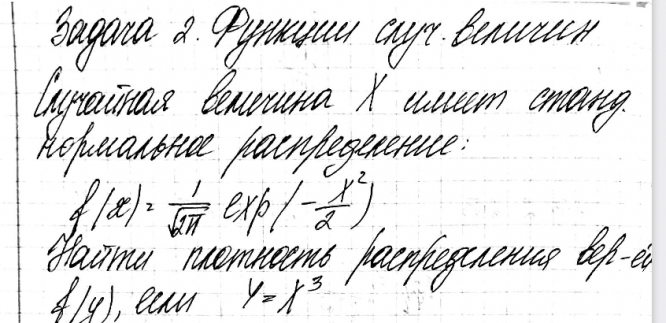 Задача 2. Функции случ. величин
Случайная величина X имеет станд.
нормальное распределение:
f(x) = 1/√2π exp(-x²/2)
Найти плотность распределения вер-ей
f(y), если Y = X³